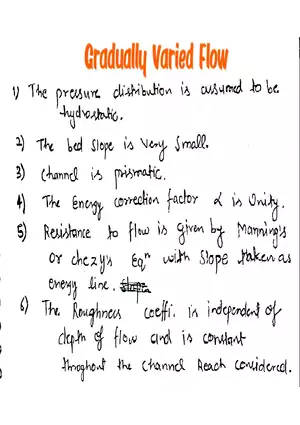 Gradually Varied Flow
1) The pressure distribution is assumed to be
hydrostatic.
2) The bed slope is very small.
3) Channel is prismatic.
4) The Energy correction factor α is Unity.
5) Resistance to flow is given by Manning's
or chezy's Eqⁿ with slope taken as
energy line. slope
6) The Roughness coeffi. is independent of
depth of flow and is constant
throghout the channel Reach considered.